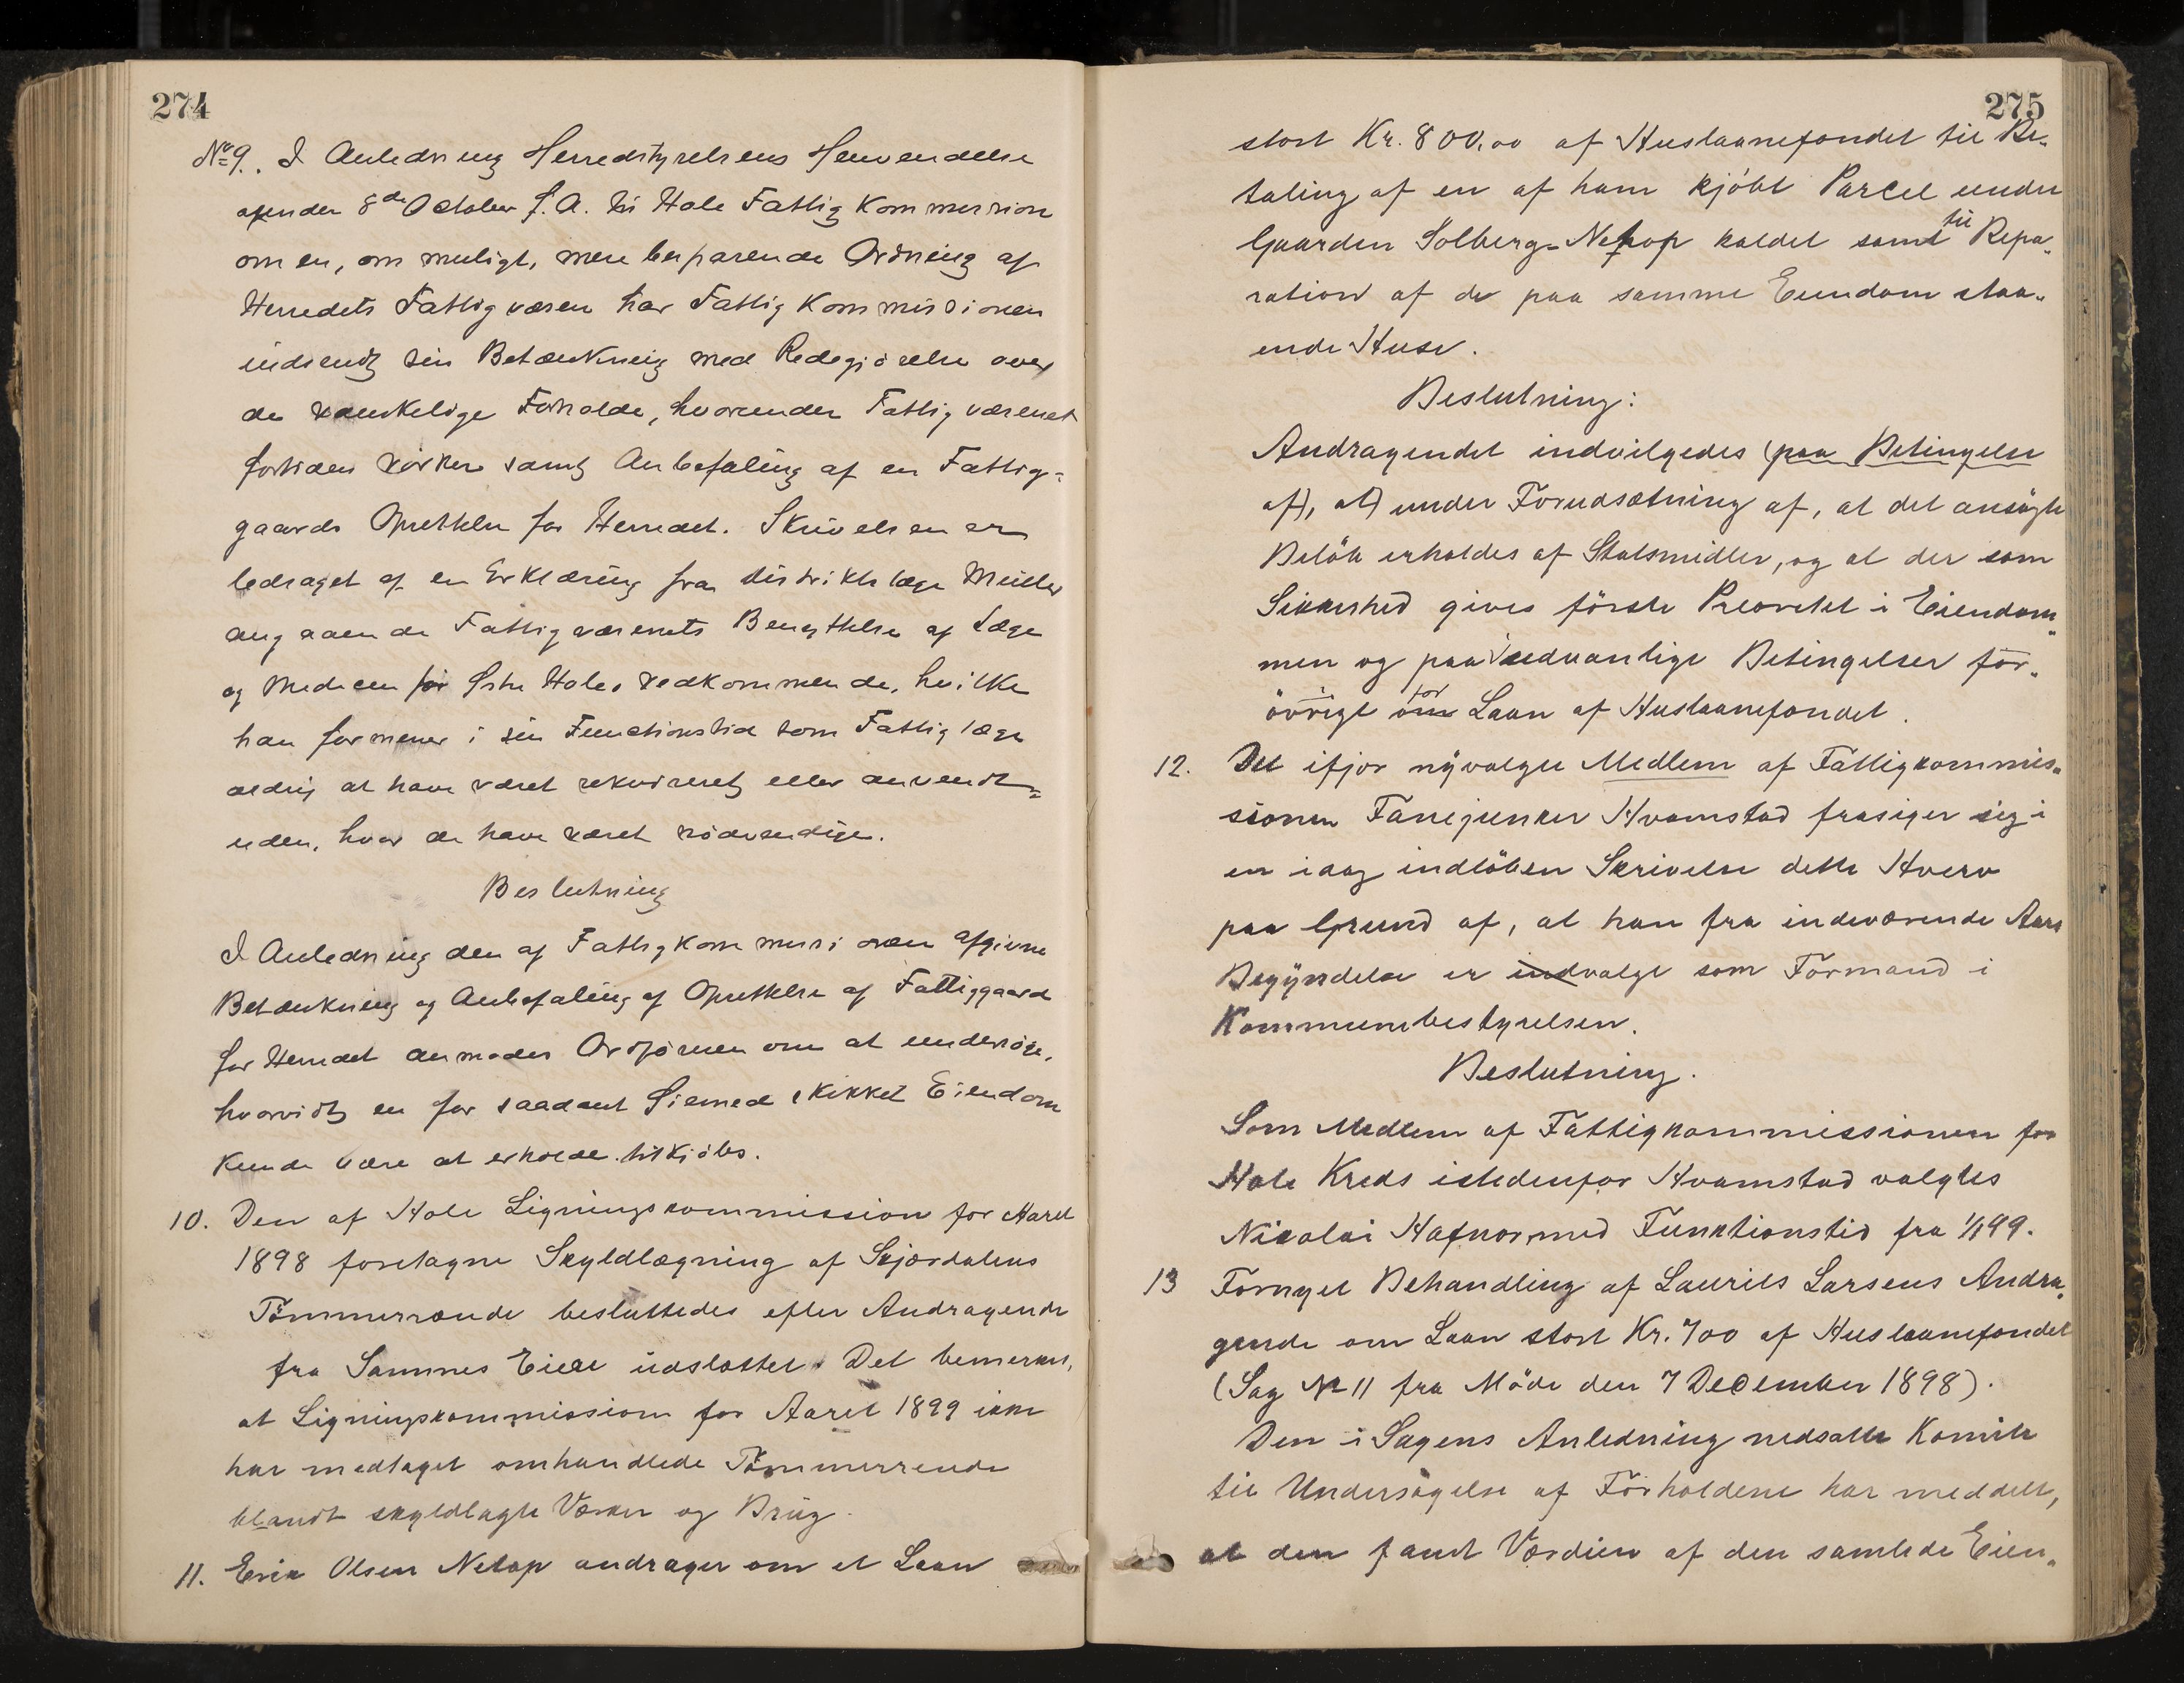 274
No 9. I Anledning Herredstyrelsens Henvendelse
af under 8de October f.A. til Hole Fattig Kommission
om en, om muligt, mere besparende Ordning af
Herredets Fattigvæsen har Fattig Kommissionen
indsendt sin Betænkning med Redegjörelse over
de vanskelige Forholde, hvorunder Fattigvæsenet
fortiden virker samt Anbefaling af en Fattig=
gaards Oprettelse for Herredet. Skrivelsen er
ledsaget af en Erklæring fra Distriktslæge Müller
angaaende Fattigvæsenets Benyttelse af Læge
og Medicin for Østre Holes Vedkommende, hvilke
han formener i sin Functionstid som Fattiglæge
aldrig at have været rekvireret eller anvendt=
uden, hvor de have været nödvendige.
Beslutning
I Anledning den af Fattigkommissionen afgivne
Betænkning og Anbefaling af Oprettelse af Fattiggaard
for Herredet anmodes Ordföreren om at undersöge,
hvorvidt en for saadant Øiemed skikket Eiendom
kunde være at erholde tilkjöbs.
10. Den af Hole Ligningskommission for Aaret
1898 foretagne Skyldlægning af Skjærdalens
Tömmerrende besluttedes efter Andragende
fra Sammes Eiere udslettet. Det bemerkes,
at Ligningskommission for Aaret 1899 ikke
har medtaget omhandlede Tömmerrende
blandt skyldlagte Værker og Brug.
11. Erik Olsen Netop andrager om et Laan
275
stort Kr. 800,00 af Huslaanefondet til Be„
taling af en af ham kjöbt Parcel under
Gaarden Solberg- Netop kaldet samt til Repa„
ration af de paa samme Eiendom staa„
ende Huse.
Beslutning:
Andragendet indvilgedes (paa Betingelse
af), at) under Forudsætning af, at det ansögte
Belöb erholdes af Statsmidler, og at der som
Sikkerhed gives förste Prioritet i Eiendom„
men og paa sedvanlige Betingelser for„
övrigt om for Laan af Huslaanefondet.
12. Det ifjor nyvalgte Medlem af Fattigkommis„
sionen Fanejunker Hvamstad frasiger sig i
en idag indlöben Skrivelse dette Hverv
paa Grund af, at han fra indeværende Aars
Begyndelse er indvalgt som Formand i
Kommunebestyrelsen.
Beslutning.
Som Medlem af Fattigkommissionen for
Hole Kreds istedenfor Hvamstad valgtes
Nicolai Hafnor, med Funktionstid fra 1/1 99.
13 Fornyet Behandling af Laurits Larsens Andra„
gende om Laan stort Kr. 700 af Huslaanefondet
(Sag No 11 fra Möde den 7 December 1898).
Den i Sagens Anledning nedsatte Komite
til Undersögelse af Forholdene har meddelt,
at den fandt Værdien af den samlede Eien„